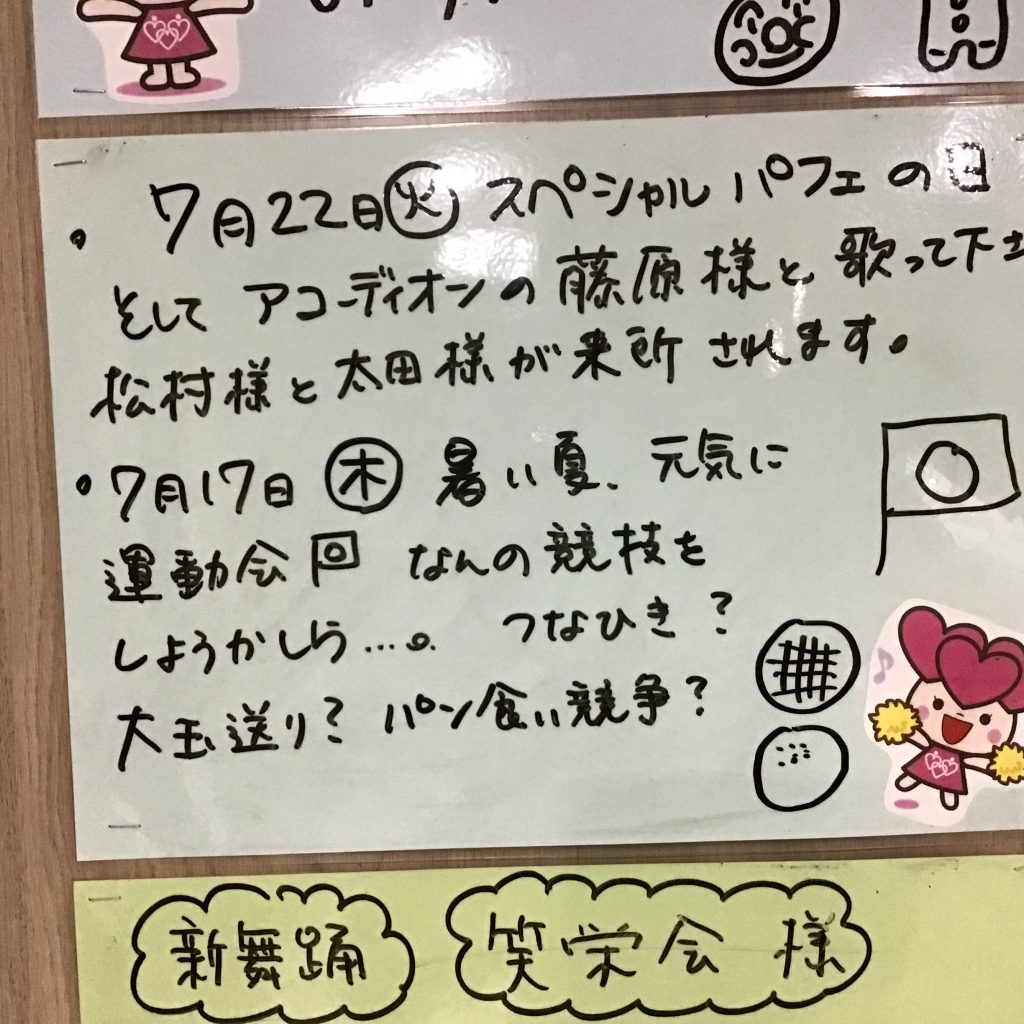 ・7月22日㊋ スペシャル パフェ の日
そして アコーディオンの 藤原 様と 歌って下さ
松村様と 太田 様が 来所 されます。
・7月17日 ㊍ 暑い夏、元気に
運動会 なんの競技を
しようかしら…。 つなひき？
大玉送り？ パン食い競争？
新舞踊 笑栄会 様